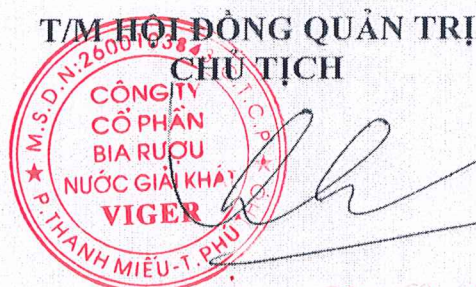 T/M HỘI ĐỒNG QUẢN TRỊ
CHỦ TỊCH
M.S.D.N:2600103843
C.T.C.P
CÔNG TY
CỔ PHẦN
BIA RƯỢU
NƯỚC GIẢI KHÁT
VIGER
P.THANH MIẾU-T.PHÚ